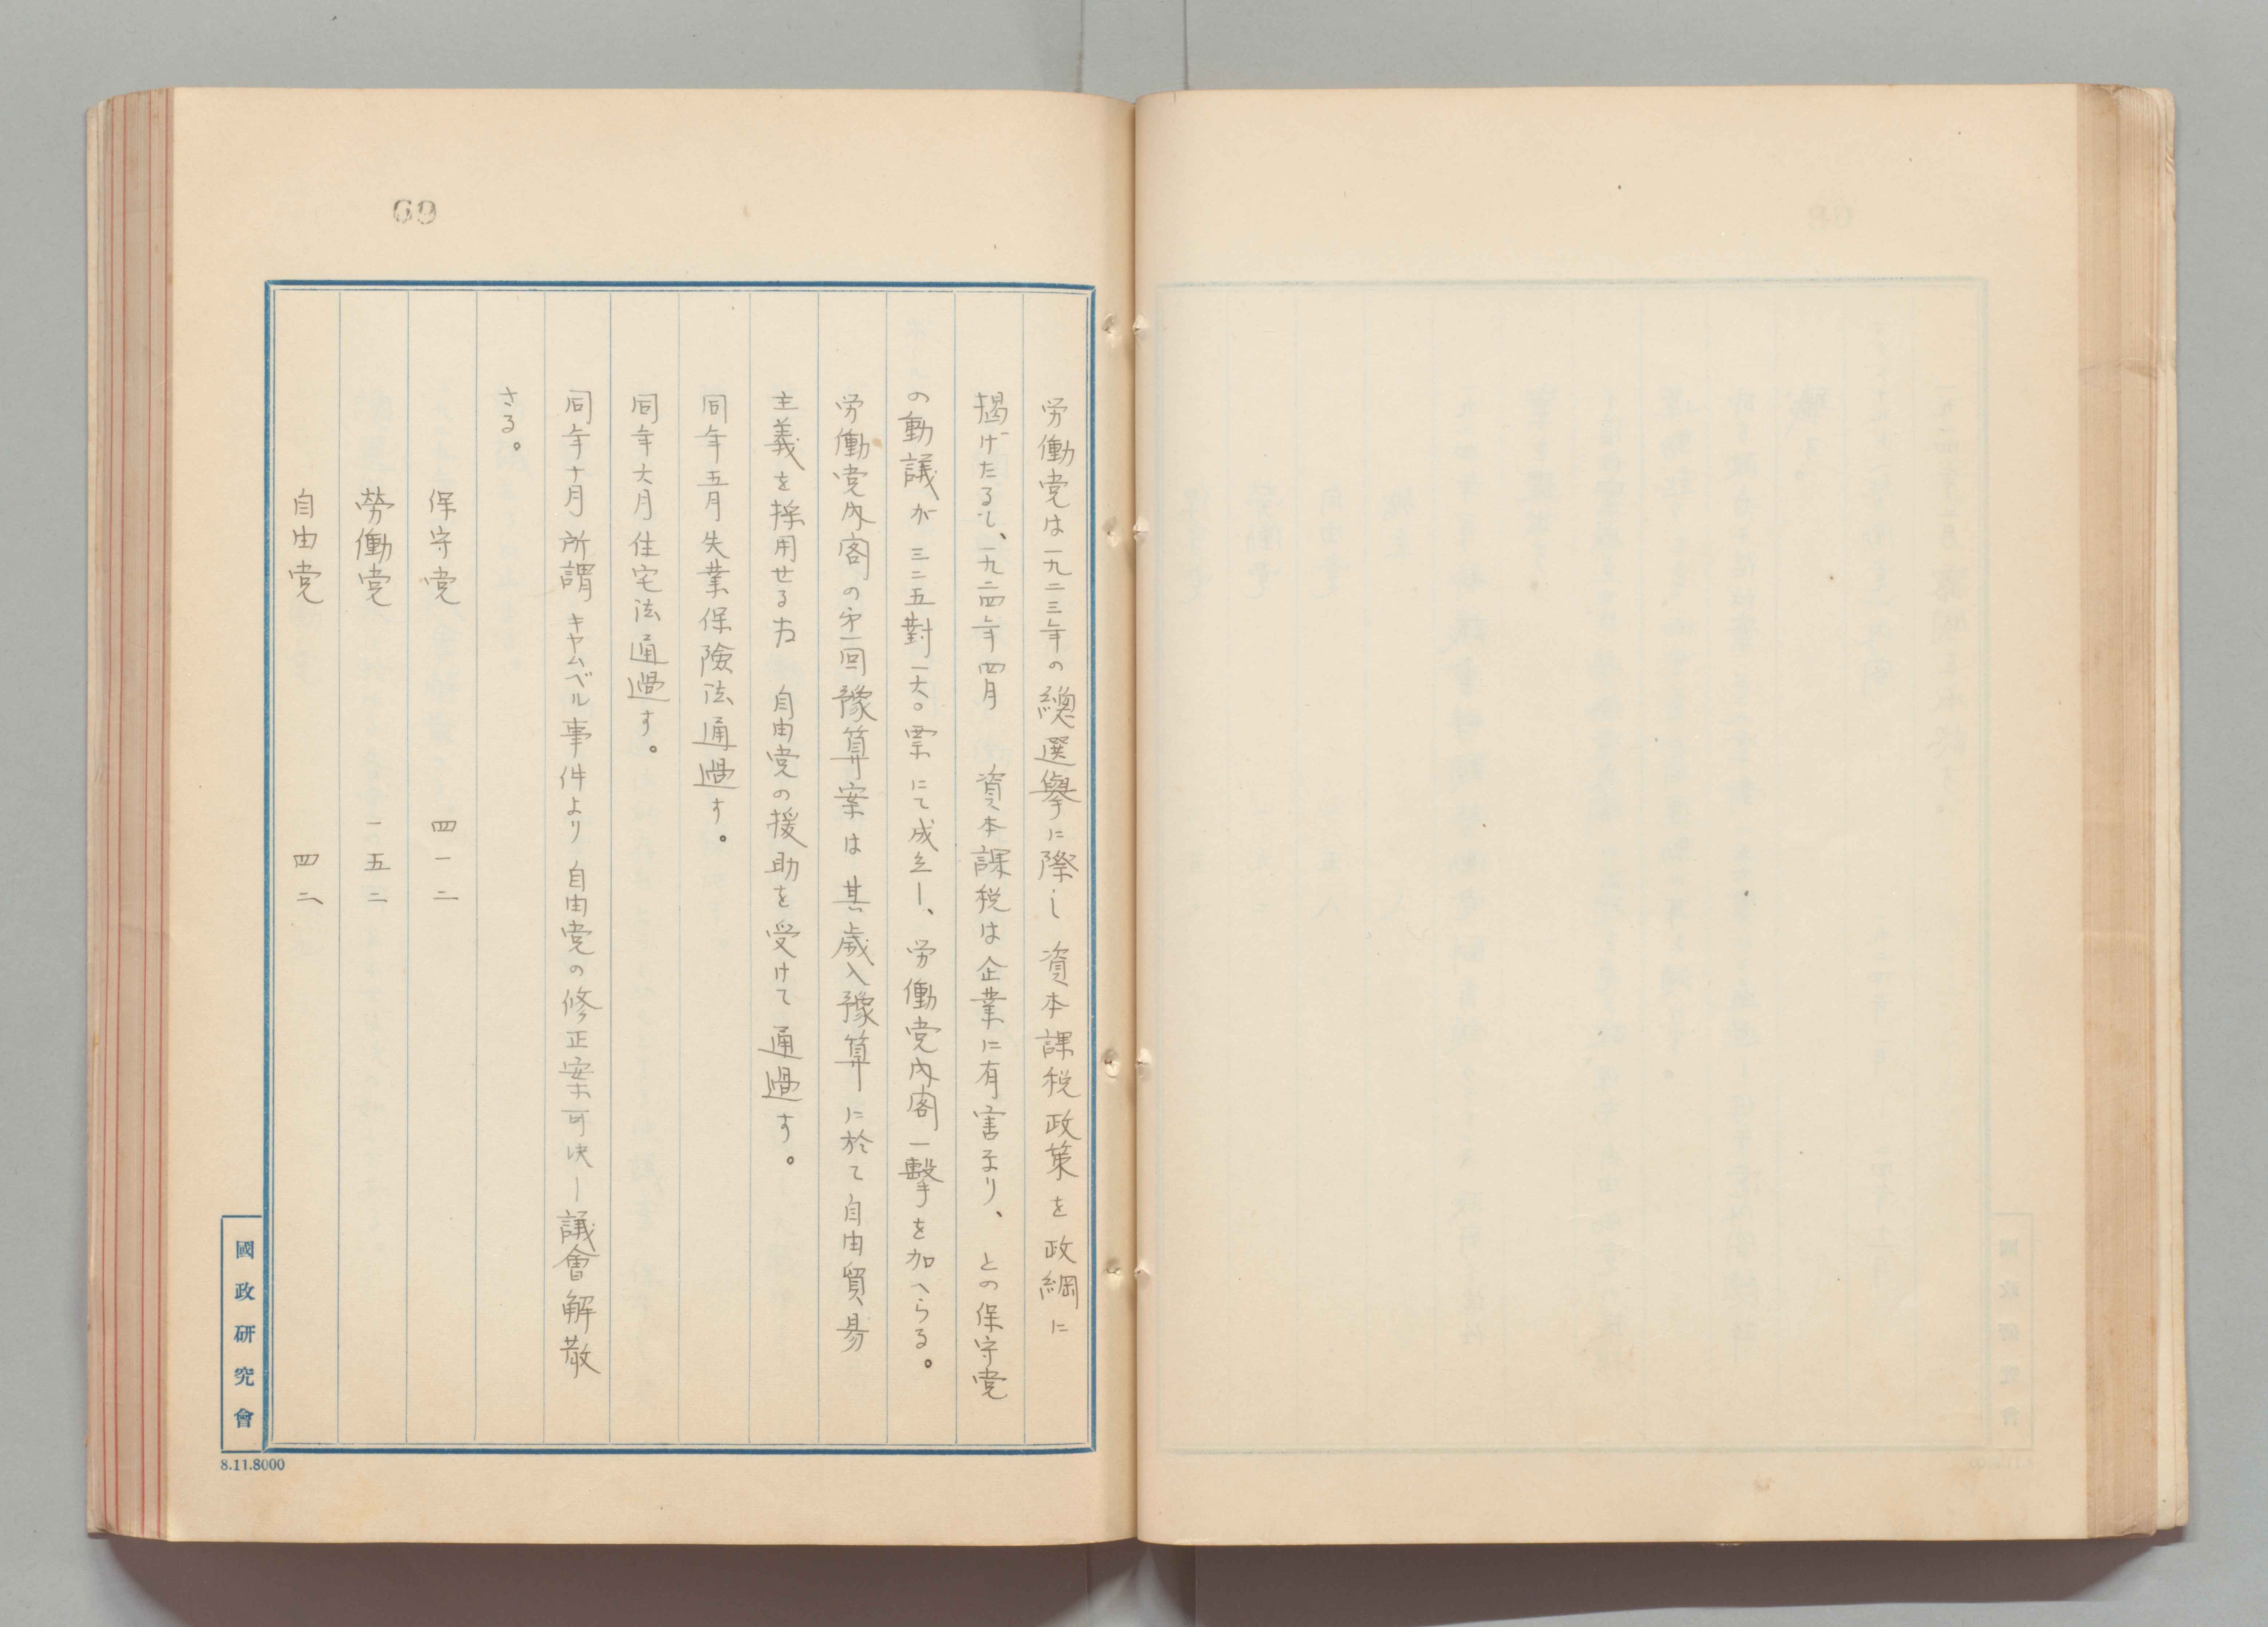 69
労働党は一九二三年の總選擧に際し資本課税政策を政綱に
掲げたるし、一九二四年四月 資本課税は企業に有害なり、との保守党
の動議が三二五對一六〇票にて成立し、労働党内閣一擊を加へらる。
労働党内閣の第一回豫算案は其歳入豫算に於て自由貿易
主義を採用せる為 自由党の援助を受けて通過す。
同年五月失業保險法通過す。
同年六月住宅法通過す。
同年十月所謂キャムベル事件より自由党の修正案可決し議會解散
さる。
保守党 四一二
勞働党 一五二
自由党 四二
國政研究會
8.11.8000